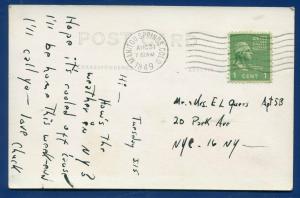 POST CARD
MANITOU SPRINGS, COLO.
AUG 31
1949
1 CENT 1
Tuesday
Hi —
How's the
weather in NY?
Hope it's cooled off cause
I'll be home this weekend
I'll call ya — love Chuck
Mr. & Mrs. E L Queers Apt 5B
20 Park Ave
NYC - 16 NY —